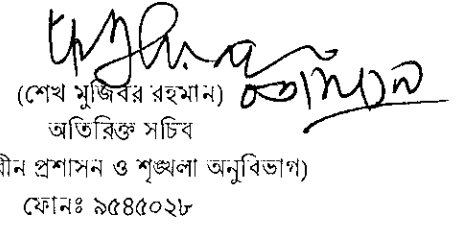 (শেখ মুজিবর রহমান)
অতিরিক্ত সচিব
রীন প্রশাসন ও শৃঙ্খলা অনুবিভাগ)
ফোনঃ ৯৫৪৫০২৮